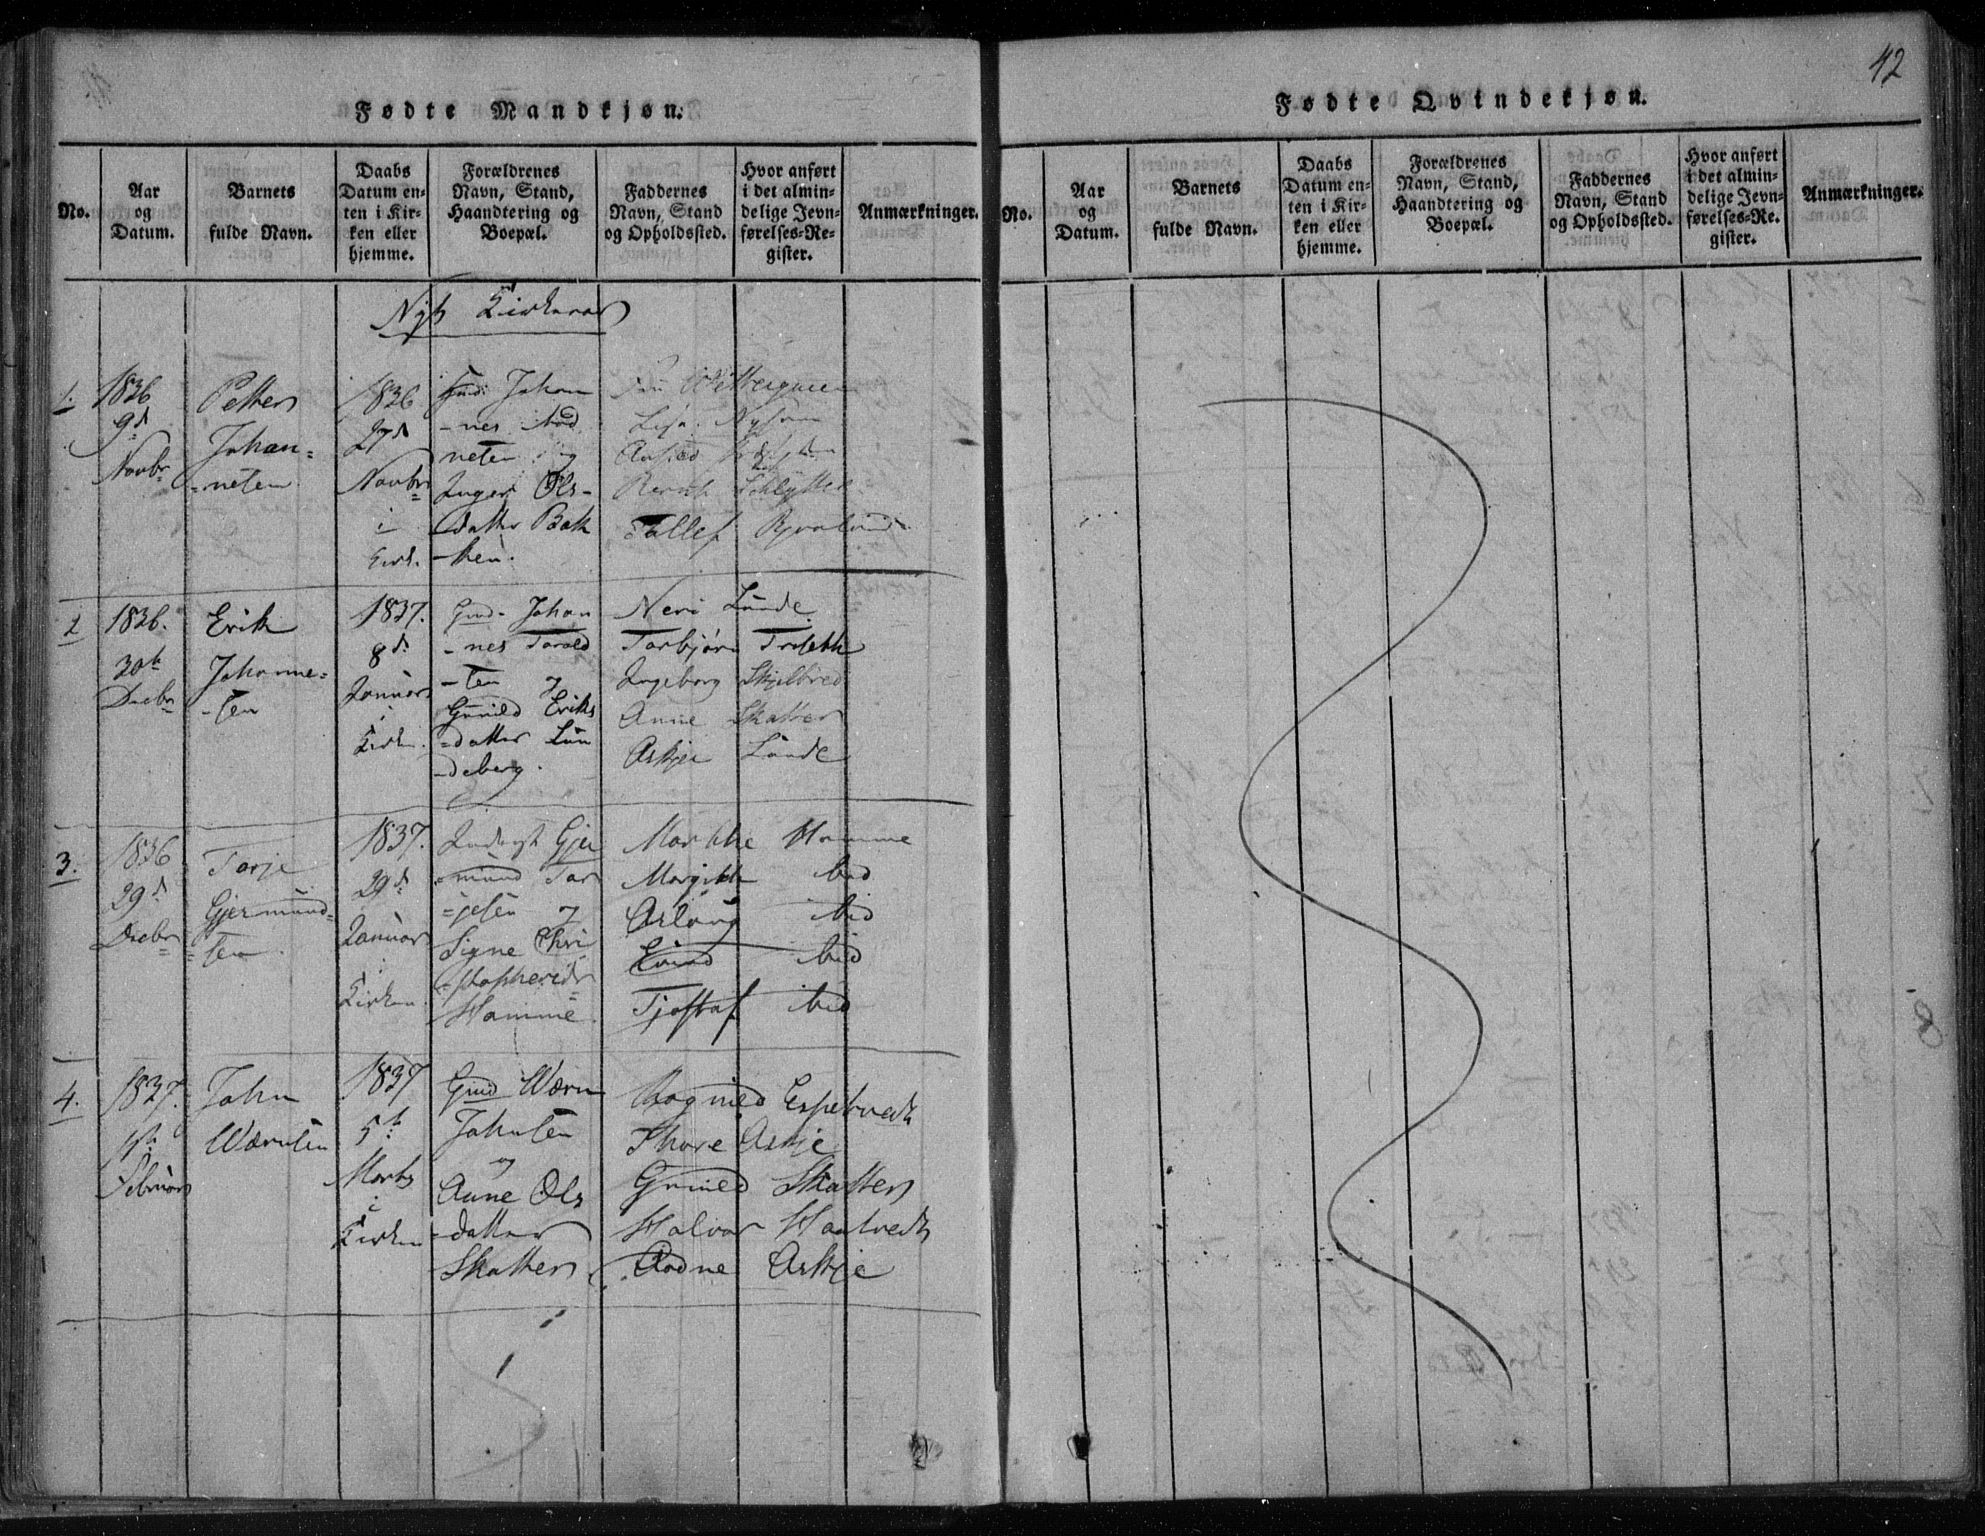 42
Fødte Mandkjøn.
No.
Aar
og
Datum.
Barnets
fulde Navn.
Daabs
Datum en-
ten i Kir-
ken eller
hjemme.
Forældrenes
Navn, Stand,
Haandtering og
Boepæl.
Faddernes
Navn, Stand
og Opholdssted.
Hvor anført
i det almin-
delige Jevn-
førelses-Re-
gister.
Anmærkninger.
Nyt Kirkeaar
1.
1836
9d
Novbr
Petter
Johan-
-nesen
1836
27d
Novbr
i
Kirk.
Gmd: Johan
-nes
og
Inger Ols-
-datter Bak
-ken.
Lisa
Tallef
2
1836.
30te
Decbr
Erik
Johanne-
-sen
1837.
8d
Januar
i
Kirken.
Gmd. Johan
-nes Tarald
-sen og
Gunild Eriks
-datter Lun
-deberg.
Neri Lunde
Torbjørn
Ingeborg Skjelbred
Anne Skatter
Askjer Lunde
3.
1836
29d
Decbr
Tarje
Gjermund-
-sen
1837.
29d
Januar
i
Kirken.
Inderst Gjer
-mund Tar
-jesen og
Signe Chri
-stophersdr
Homme
Markke Homme
Margith ibid
Aslaug ibid
Eivind ibid
Tjostaf ibid
4.
1837.
1ste
Februar
John
Wærnsen
1837
5te
Marts
i
Kirken
Gmd Wærn
Johnsen
og
Anne Ols
-datter
Skatter
Ragnild Espetvedt
Thore Askje
Gunild Skatter
Halvor Haatvedt
Aadne Askje
Fødte Qvindekjøn.
No.
Aar
og
Datum.
Barnets
fulde Navn.
Daabs
Datum en-
ten i Kir-
ken eller
hjemme.
Forældrenes
Navn, Stand,
Haandtering og
Boepæl.
Faddernes
Navn, Stand
og Opholdssted.
Hvor anført
i det almin-
delige Jevn-
førelses-Re-
gister.
Anmærkninger.